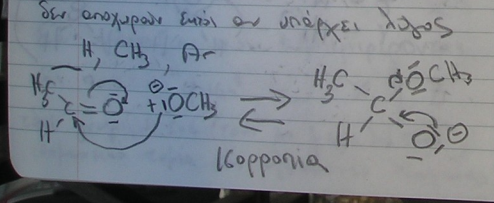 δεν αποχωρούν εκτός αν υπάρχει λόγος
H, CH3, Ar
H3C C=O + OCH3 ⇌ H3C C OCH3
H H O
Ισορροπία